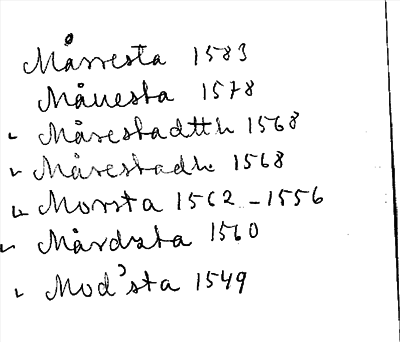 Mårresta 1583
Måuesta 1578
Mårestadtth 1568
Mårestadh 1568
Morsta 1562 - 1556
Mårdsta 1560
Mod'sta 1549